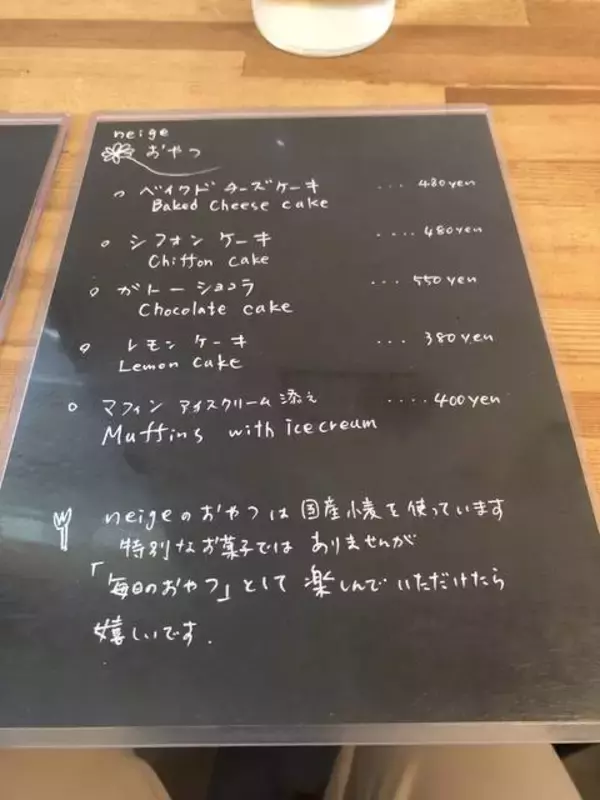 neige
おやつ
ベイクド チーズケーキ ... 480yen
Baked Cheese cake
シフォン ケーキ .... 480yen
Chiffon cake
ガトーショコラ ... 550yen
Chocolate cake
レモン ケーキ ... 380yen
Lemon cake
マフィン アイスクリーム添え .... 400yen
Muffins with icecream
neigeのおやつは国産小麦を使っています
特別なお菓子ではありませんが
「毎日のおやつ」として楽しんでいただけたら
嬉しいです.